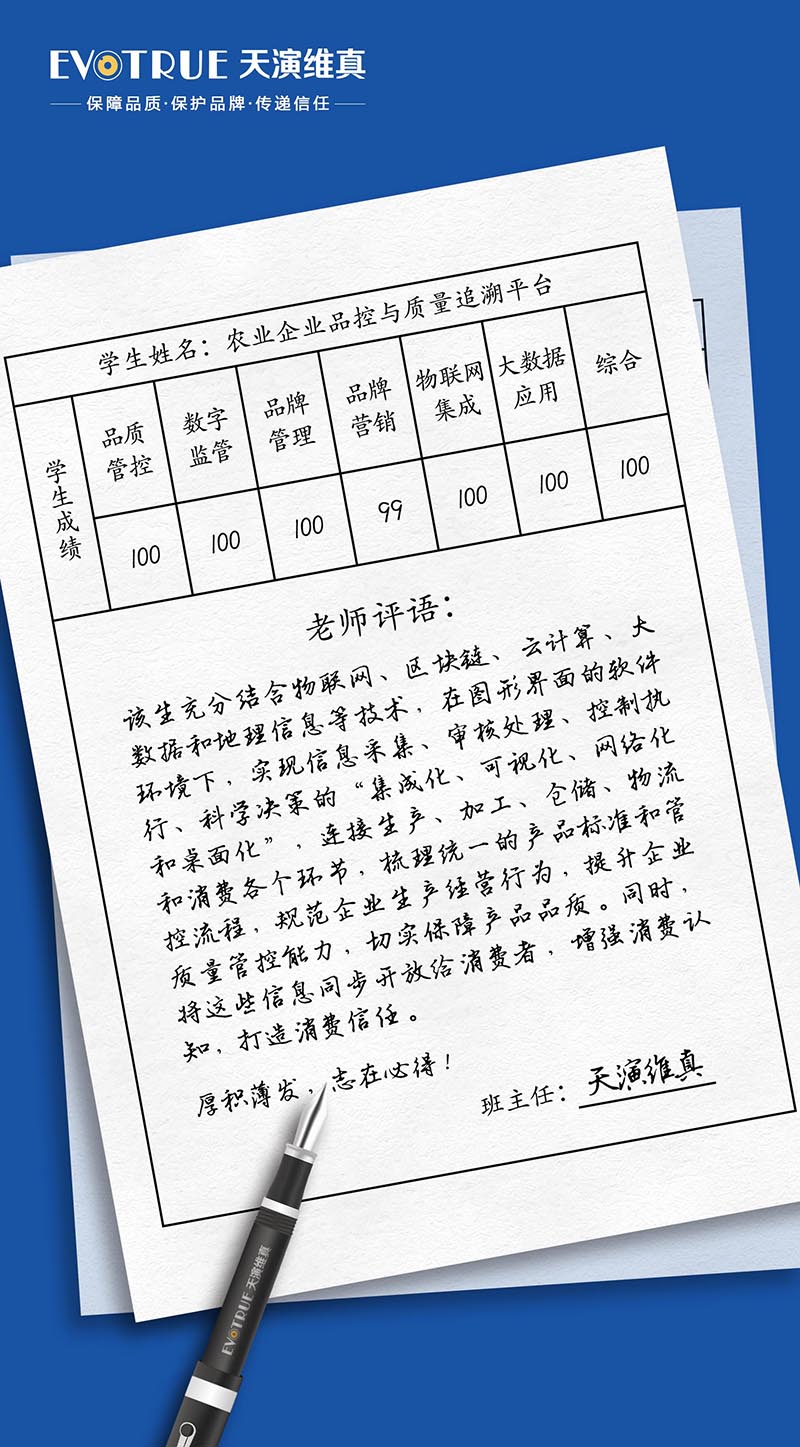 EVOTRUE 天演维真
保障品质·保护品牌·传递信任
学生姓名：农业企业品控与质量追溯平台
学生成绩
品质管控 数字监管 品牌管理 品牌营销 物联网集成 大数据应用 综合
100 100 100 99 100 100 100
老师评语：
该生充分结合物联网、区块链、云计算、大
数据和地理信息等技术，在图形界面的软件
环境下，实现信息采集、审核处理、控制执
行、科学决策的“集成化、可视化、网络化
和桌面化”，连接生产、加工、仓储、物流
和消费各个环节，梳理统一的产品标准和管
控流程，规范企业生产经营行为，提升企业
质量管控能力，切实保障产品品质。同时，
将这些信息同步开放给消费者，增强消费认
知，打造消费信任。
厚积薄发，志在必得！
班主任：天演维真
EVOTRUE 天演维真